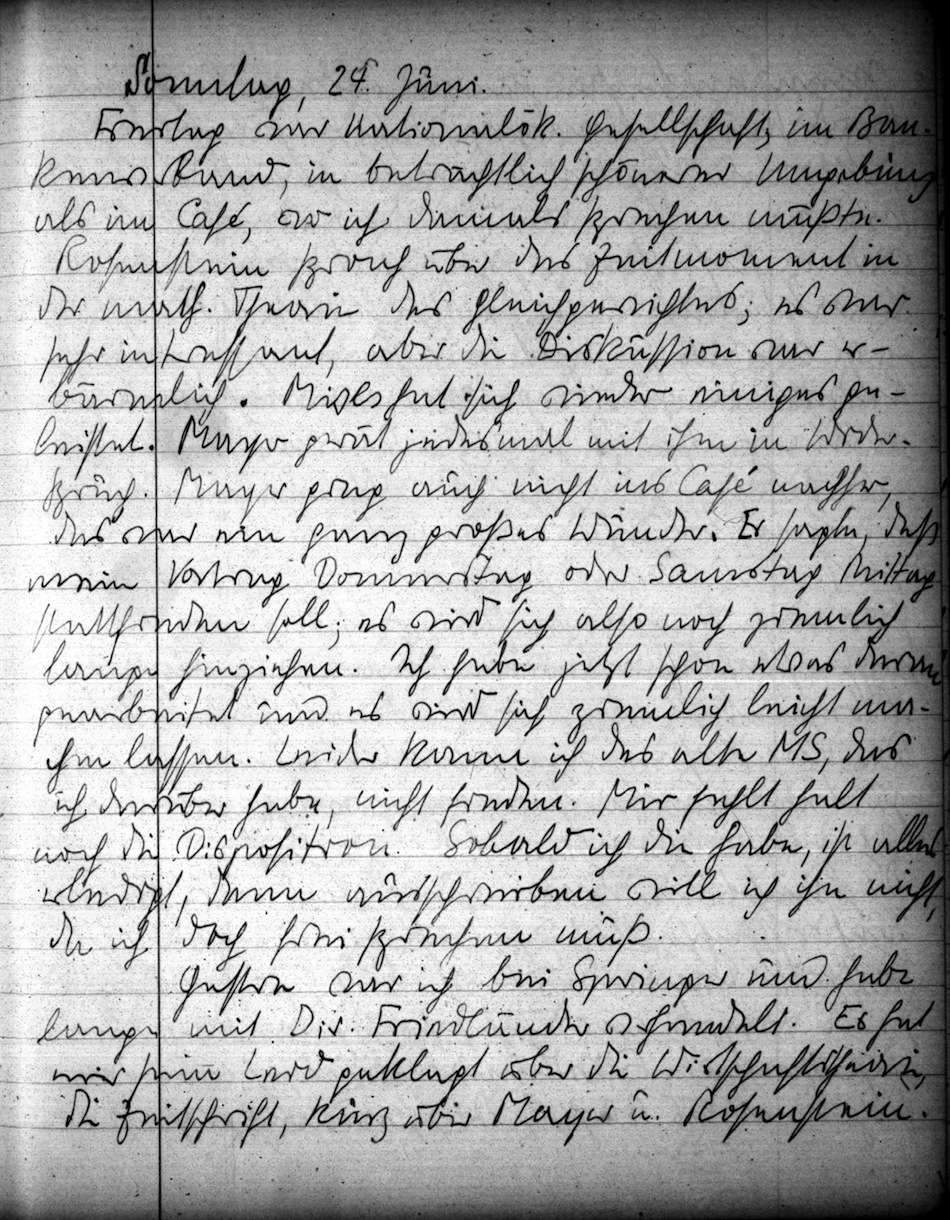 Sonntag, 24. Juni.
Freitag war Nationalök. Gesellschaft, im Ban-
kenverband, in beträchtlich schönerer Umgebung
als im Café, wo ich damals sprechen mußte.
Rosenstein sprach über das Zeitmoment in
der math. Theorie des Gleichgewichtes; es war
sehr interessant, aber die Diskussion war er-
bärmlich. Mises hat sich wieder einiges ge-
leistet. Mayer gerät jedesmal mit ihm in Wider-
spruch. Mayer ging auch nicht ins Café nachher,
das war ein ganz großes Wunder. Er sagte, daß
mein Vortrag Donnerstag oder Samstag Mittag
stattfinden soll; es wird sich also noch ziemlich
lange hinziehen. Ich habe jetzt schon etwas daran
gearbeitet und es wird sich ziemlich leicht ma-
chen lassen. Leider kann ich das alte MS, das
ich darüber habe, nicht finden. Mir fehlt halt
noch die Disposition. Sobald ich die habe, ist alles
erledigt, denn ausschreiben will ich ihn nicht,
da ich doch frei sprechen muß.
Gestern war ich bei Springer und habe
lange mit Dir. Friedländer verhandelt. Er hat
mir sein Leid geklagt über die Wirtschaftstheorie,
die Zeitschrift, kurz über Mayer u. Rosenstein.